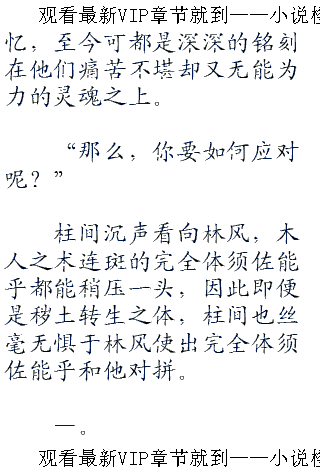 观看最新VIP章节就到——小说检
忆，至今可都是深深的铭刻
在他们痛苦不堪却又无能为
力的灵魂之上。
“那么，你要如何应对
呢？”
柱间沉声看向林风，木
人之术连斑的完全体须佐能
乎都能稍压一头，因此即便
是秽土转生之体，柱间也丝
毫无惧于林风使出完全体须
佐能乎和他对拼。
一。
观看最新VIP章节就到——小说检